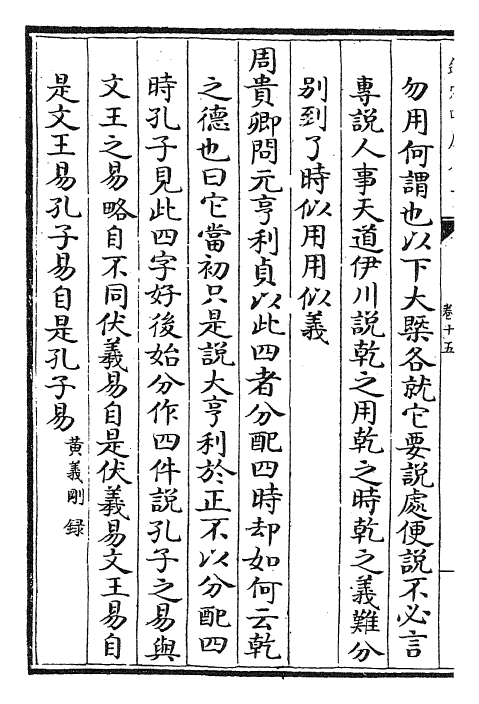 卷十五
勿用何謂也以下大槩各就它要說處便說不必言
專說人事天道伊川說乾之用乾之時乾之義難分
別到了時似用用似義
周貴卿問元亨利貞以此四者分配四時却如何云乾
之德也曰它當初只是說大亨利於正不以分配四
時孔子見此四字好後始分作四件說孔子之易與
文王之易略自不同伏羲易自是伏羲易文王易自
是文王易孔子易自是孔子易黄義剛録